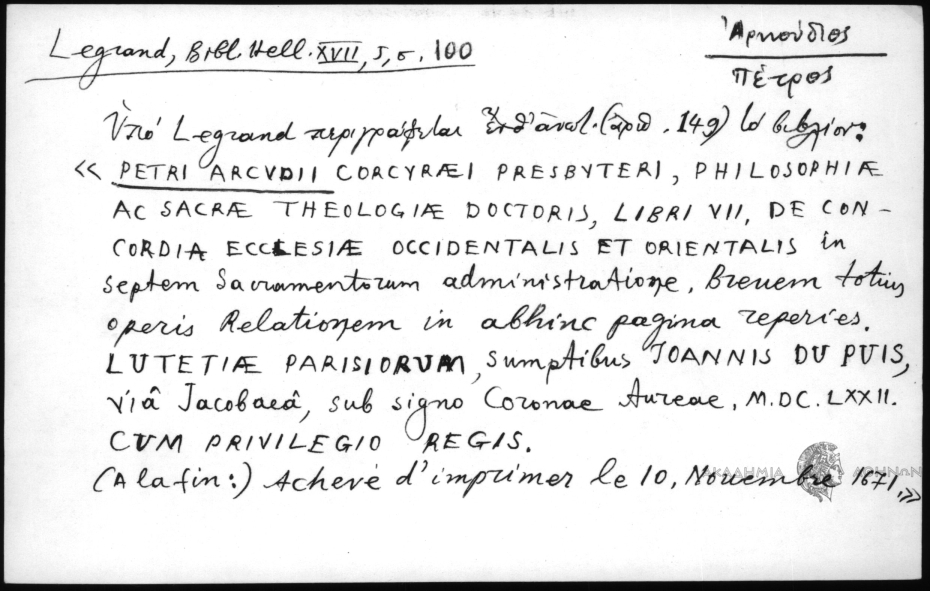 Legrand, Bibl. Hell. XVII, 5, σ. 100
Ἀρκούδιος
Πέτρος
Ὑπό Legrand περιγράφεται ἔνθ' ἀνωτ. (ἀριθ. 149) τό βιβλίον:
« PETRI ARCVDII CORCYRÆI PRESBYTERI, PHILOSOPHIÆ
AC SACRÆ THEOLOGIÆ DOCTORIS, LIBRI VII, DE CON-
CORDIA ECCLESIÆ OCCIDENTALIS ET ORIENTALIS in
septem Sacramentorum administratione, Breuem totius
operis Relationem in abhinc pagina reperies.
LUTETIÆ PARISIORUM, sumptibus JOANNIS DU PUIS,
viâ Jacobaeâ, sub signo Coronae Aureae, M.DC.LXXII.
CVM PRIVILEGIO REGIS.
(A la fin:) Achevé d'imprimer le 10, Nouembre 1671.»
ΑΚΑΔΗΜΙΑ ΑΘΗΝΩΝ